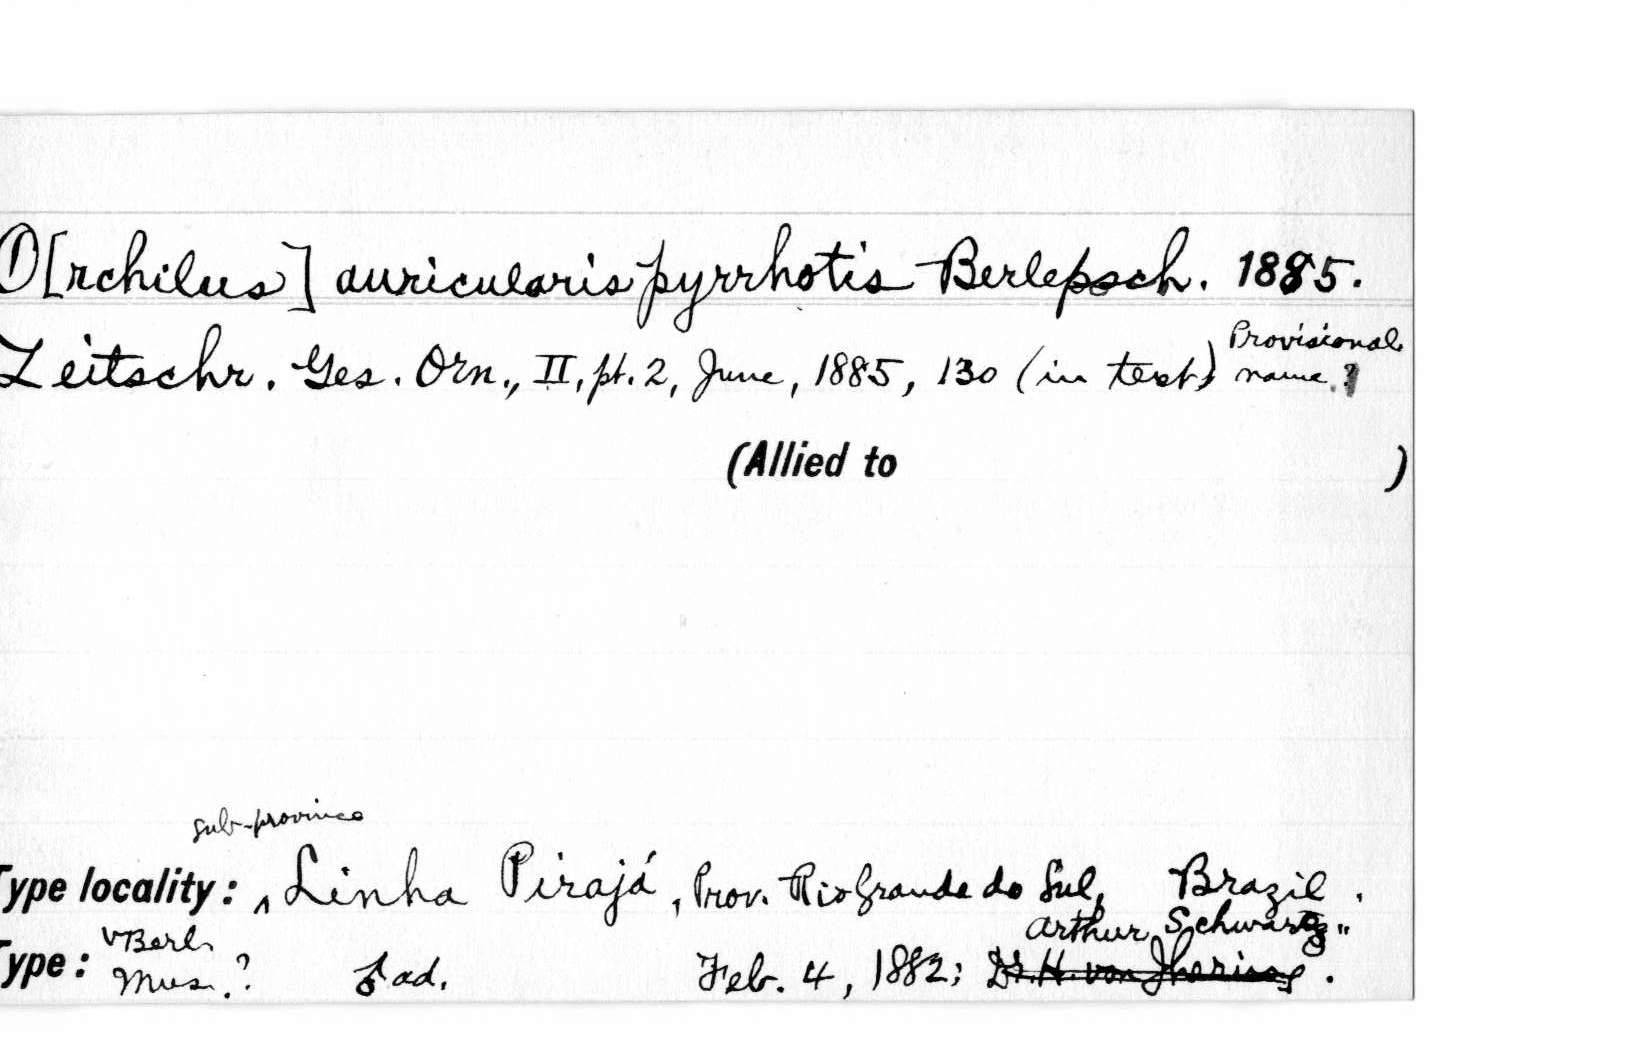 O[rchilus] auricularis pyrrhotis Berlepsch. 1885.
Zeitschr. Ges. Orn., II, pt. 2, June, 1885, 130 (in text) Provisional name?
(Allied to )
sub-province
Type locality: ‸ Linha Pirajá, Prov. Rio Grande do Sul, Brazil.
Arthur Schwartz
Type: vBerl. Mus.? ad. Feb. 4, 1882; Dr. H. von Jhering.